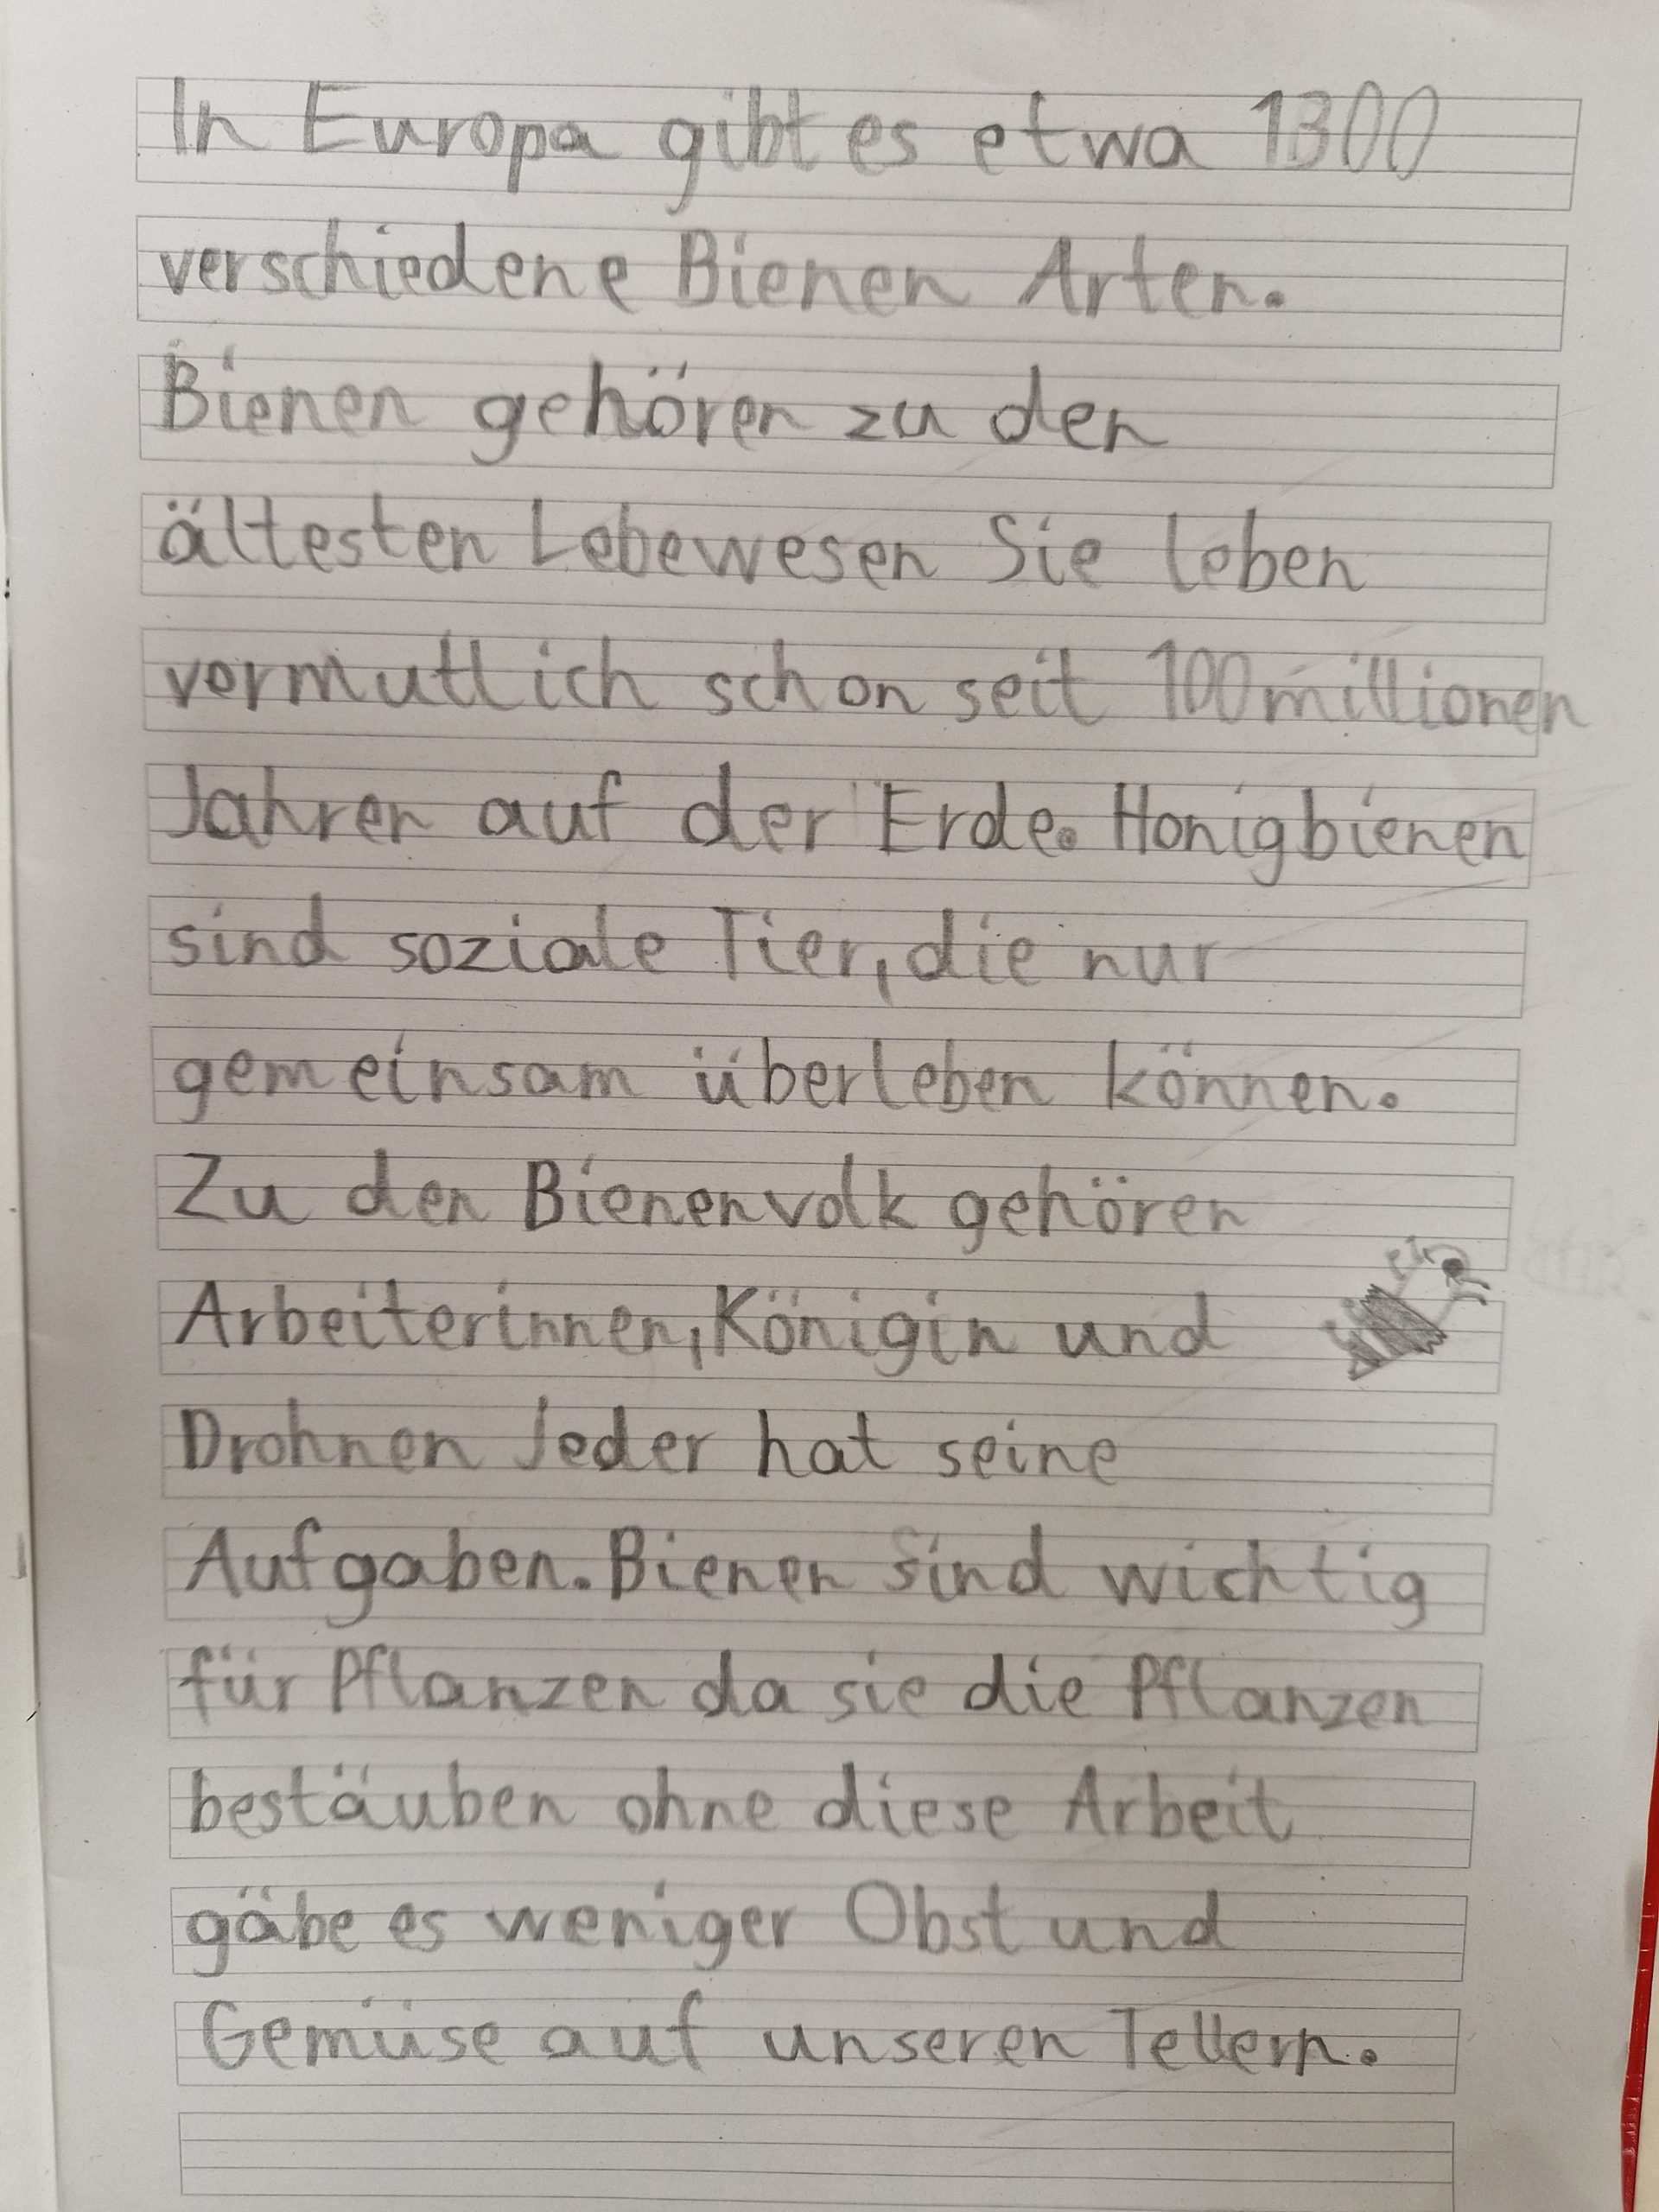 In Europa gibt es etwa 1300
verschiedene Bienen Arten.
Bienen gehören zu den
ältesten Lebewesen Sie leben
vermutlich schon seit 100 millionen
Jahren auf der Erde. Honigbienen
sind soziale Tier, die nur
gemeinsam überleben können.
Zu den Bienenvolk gehören
Arbeiterinnen, Königin und
Drohnen Jeder hat seine
Aufgaben. Bienen sind wichtig
für Pflanzen da sie die Pflanzen
bestäuben ohne diese Arbeit
gäbe es weniger Obst und
Gemüse auf unseren Tellern.